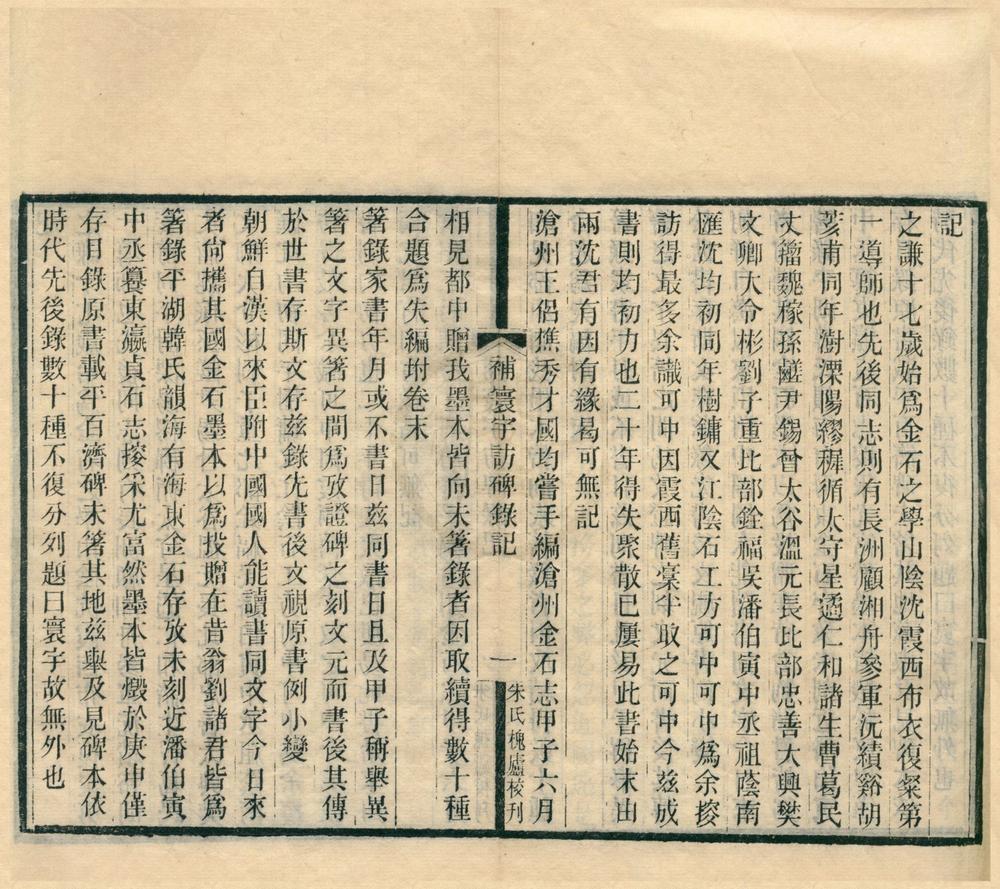 記
之謙十七歲始爲金石之學山陰沈霞西布衣復粲第
一導師也先後同志則有長洲顧湘舟參軍沅績谿胡
荄甫同年澍溧陽繆穉循太守星遹仁和諸生曹葛民
丈籀魏稼孫鹺尹錫曾太谷溫元長比部忠善大興樊
文卿大令彬劉子重比部銓福吳潘伯寅中丞祖蔭南
匯沈均初同年樹鏞又江陰石工方可中可中爲余搜
訪得最多余識可中因霞西舊稾半取之可中今茲成
書則均初力也二十年得失聚散已屢易此書始末由
兩沈君有因有緣曷可無記
滄州王侶樵秀才國均嘗手編滄州金石志甲子六月
補寰宇訪碑錄記
一
朱氏槐廬校刊
相見都中贈我墨本皆向未箸錄者因取續得數十種
合題爲失編坿卷末
箸錄家書年月或不書日茲同書日且及甲子稱舉異
箸之文字異箸之間爲攷證碑之刻文元而書後其傳
於世書存斯文存茲錄先書後文視原書例小變
朝鮮自漢以來臣附中國國人能讀書同文字今日來
者尙攜其國金石墨本以爲投贈在昔翁劉諸君皆爲
箸錄平湖韓氏韻海有海東金石存攷未刻近潘伯寅
中丞纂東瀛貞石志搜采尤富然墨本皆燬於庚申僅
存目錄原書載平百濟碑未箸其地茲舉及見碑本依
時代先後錄數十種不復分列題曰寰宇故無外也